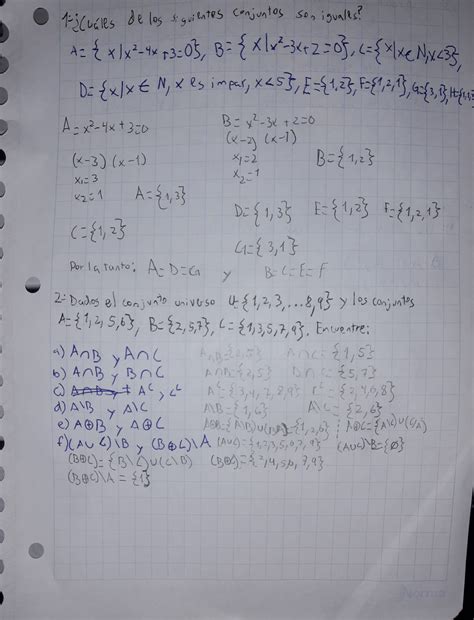 1-¿Cuáles de los siguientes conjuntos son iguales?
A={x|x²-4x+3=0}, B={x|x²-3x+2=0}, C={x|x∈N,x<3},
D={x|x∈N, x es impar, x<5}, E={1,2}, F={1,2,1}, G={3,1}, H={1,
A=x²-4x+3=0 B=x²-3x+2=0
(x-3)(x-1) (x-2)(x-1)
x₁=3 x₁=2 B={1,2}
x₂=1 A={1,3} x₂=1
D={1,3} E={1,2} F={1,2,1}
C={1,2}
G={3,1}
Por lo tanto: A=D=G y B=C=E=F
2-Dados el conjunto universo U={1,2,3,...8,9} y los conjuntos
A={1,2,5,6}, B={2,5,7}, C={1,3,5,7,9}. Encuentre:
a) A∩B y A∩C A∩B={2,5} A∩C={1,5}
b) A∩B y B∩C A∩B={2,5} B∩C={5,7}
c) A∩B y A^c, C^c A^c={3,4,7,8,9} C^c={2,4,6,8}
d) A\B y A\C A\B={1,6} A\C={2,6}
e) A⊕B y A⊕C
f) (A∪C)\B y (B⊕C)\A (A∪C)\B={Ø}
(B⊕C)={B\C)∪(C\B)
(B⊕C)\A={1}
Norma